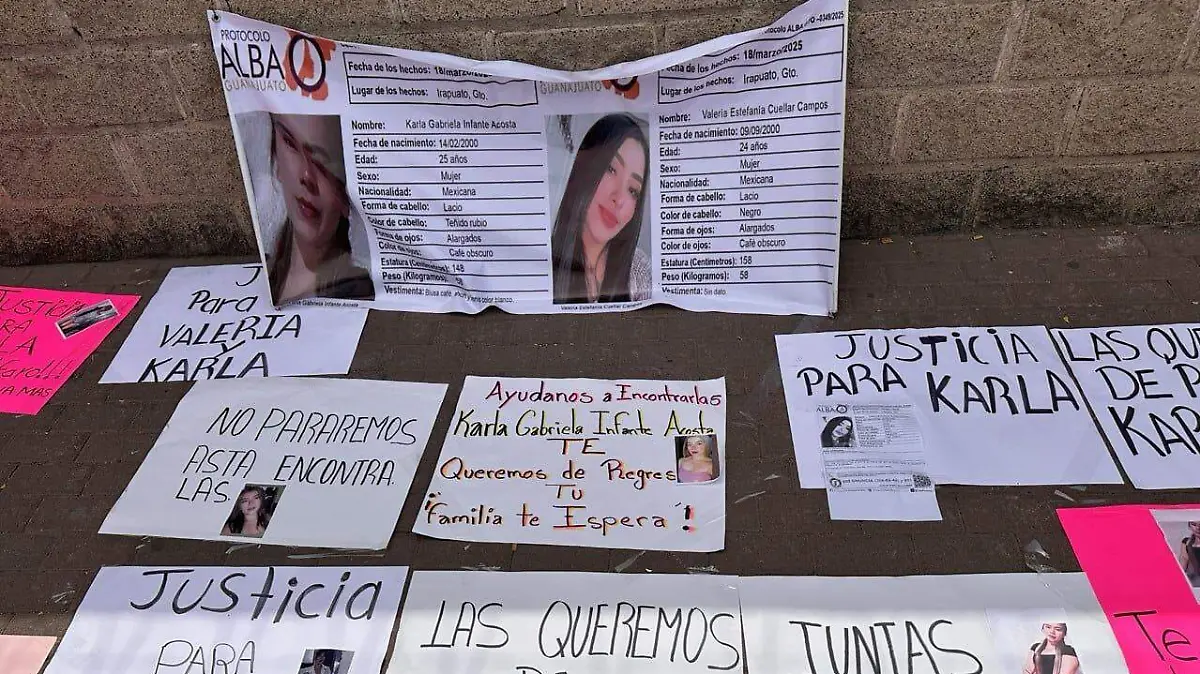 PROTOCOLO
ALBA
GUANAJUATO
Fecha de los hechos: 18/marzo/2025
Lugar de los hechos: Irapuato, Gto.
Nombre: Karla Gabriela Infante Acosta
Fecha de nacimiento: 14/02/2000
Edad: 25 años
Sexo: Mujer
Nacionalidad: Mexicana
Forma de cabello: Lacio
Color de cabello: Teñido rubio
Forma de ojos: Alargados
Color de ojos: Café obscuro
Estatura (Centímetros): 148
Peso (Kilogramos): 58
Vestimenta: Blusa café,
color blanco.
Gabriela Infante Acosta
GUANAJUATO
Protocolo ALBA
-0349/2025
Fecha de los hechos: 18/marzo/2025
Lugar de los hechos: Irapuato, Gto.
Nombre: Valeria Estefanía Cuellar Campos
Fecha de nacimiento: 09/09/2000
Edad: 24 años
Sexo: Mujer
Nacionalidad: Mexicana
Forma de cabello: Lacio
Color de cabello: Negro
Forma de ojos: Alargados
Color de ojos: Café obscuro
Estatura (Centímetros): 158
Peso (Kilogramos): 58
Vestimenta: Sin dato.
Valeria Estefanía Cuellar Campos
JUSTICIA
MAS
J
Para
VALERIA
Y
KARLA
NO PARAREMOS
ASTA ENCONTRA.
LAS.
Ayudanos a Encontrarlas
Karla Gabriela Infante Acosta
TE
Queremos de Regres
TU
¡Familia te Espera!
JUSTICIA
PARA KARLA
ALBA
LAS QUE
DE
KAR
Justicia
PARA
LAS QUEREMOS
JUNTAS
Te